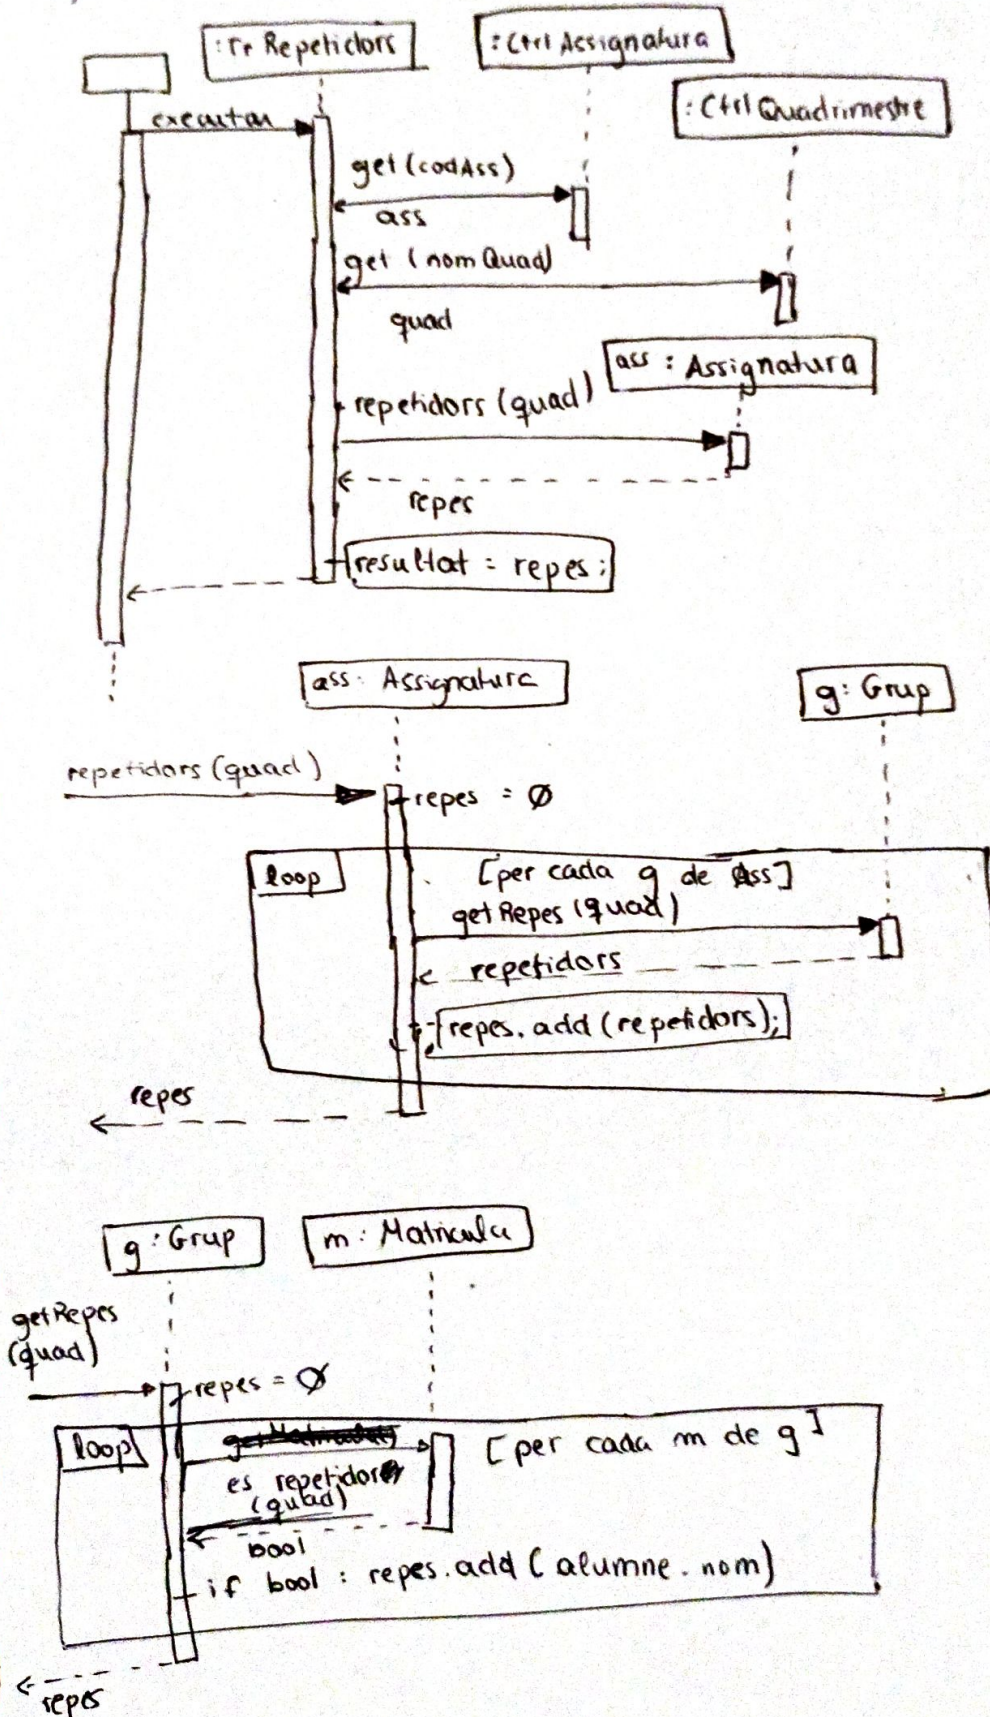 :Tr Repetidors
:Ctrl Assignatura
:Ctrl Quadrimestre
executar
get (codAss)
ass
get (nomQuad)
quad
ass : Assignatura
repetidors (quad)
repes
resultat = repes;
ass: Assignatura
g: Grup
repetidors (quad)
repes = Ø
loop
[per cada g de Ass]
getRepes (quad)
repetidors
repes.add (repetidors);
repes
g: Grup
m: Matricula
getRepes
(quad)
repes = Ø
loop
[per cada m de g]
es repetidor
(quad)
bool
if bool : repes.add (alumne.nom)
repes